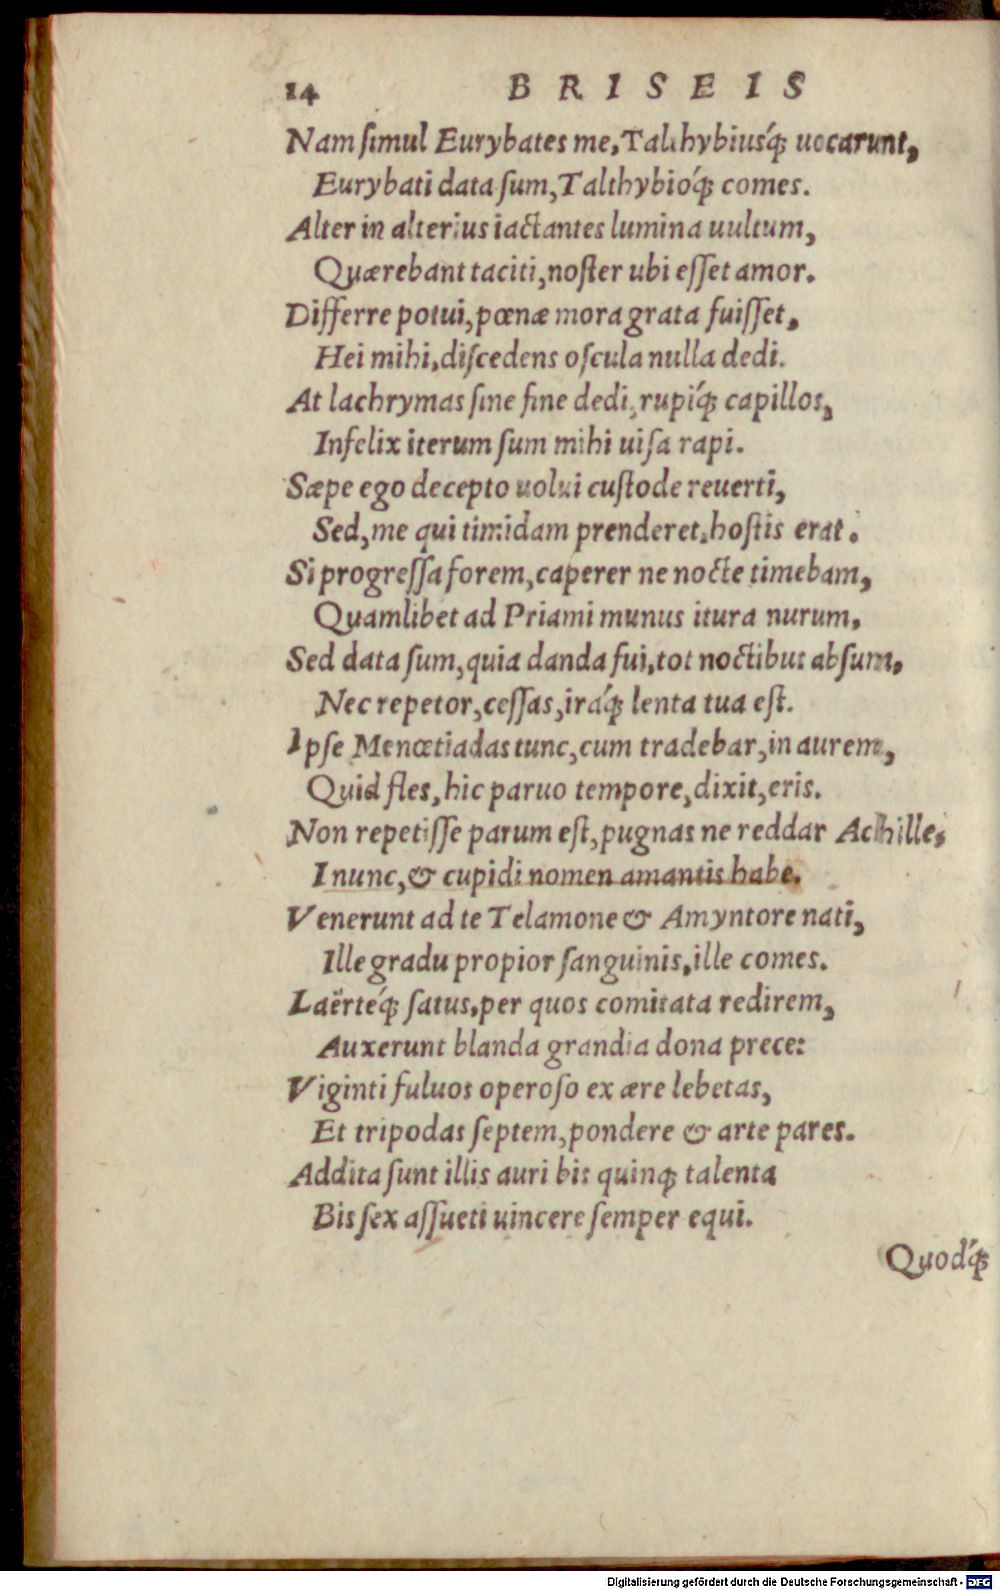 14 BRISEIS
Nam ſimul Eurybates me, Talthybiusq́; uocarunt,
Eurybati data ſum, Talthybioq́; comes.
Alter in alterius iactantes lumina uultum,
Quærebant taciti, noſter ubi eſſet amor.
Differre potui, pœnæ mora grata fuiſſet,
Hei mihi, diſcedens oſcula nulla dedi.
At lachrymas ſine fine dedi, rupiq́; capillos,
Infelix iterum ſum mihi uiſa rapi.
Sæpe ego decepto uolui cuſtode reuerti,
Sed, me qui timidam prenderet, hoſtis erat.
Si progreſſa forem, caperer ne nocte timebam,
Quamlibet ad Priami munus itura nurum,
Sed data ſum, quia danda fui, tot noctibus abſum,
Nec repetor, ceſſas, iraq́; lenta tua eſt.
Ipſe Menœtiadas tunc, cum tradebar, in aurem,
Quid fles, hic paruo tempore, dixit, eris.
Non repetiſſe parum eſt, pugnas ne reddar Achille,
I nunc, & cupidi nomen amantis habe.
Venerunt ad te Telamone & Amyntore nati,
Ille gradu propior ſanguinis, ille comes.
Laërteq́; ſatus, per quos comitata redirem,
Auxerunt blanda grandia dona prece:
Viginti fuluos operoſo ex ære lebetas,
Et tripodas ſeptem, pondere & arte pares.
Addita ſunt illis auri bis quinq; talenta
Bis ſex aſſueti uincere ſemper equi.
Quodq́;
Digitalisierung gefördert durch die Deutsche Forschungsgemeinschaft - DFG